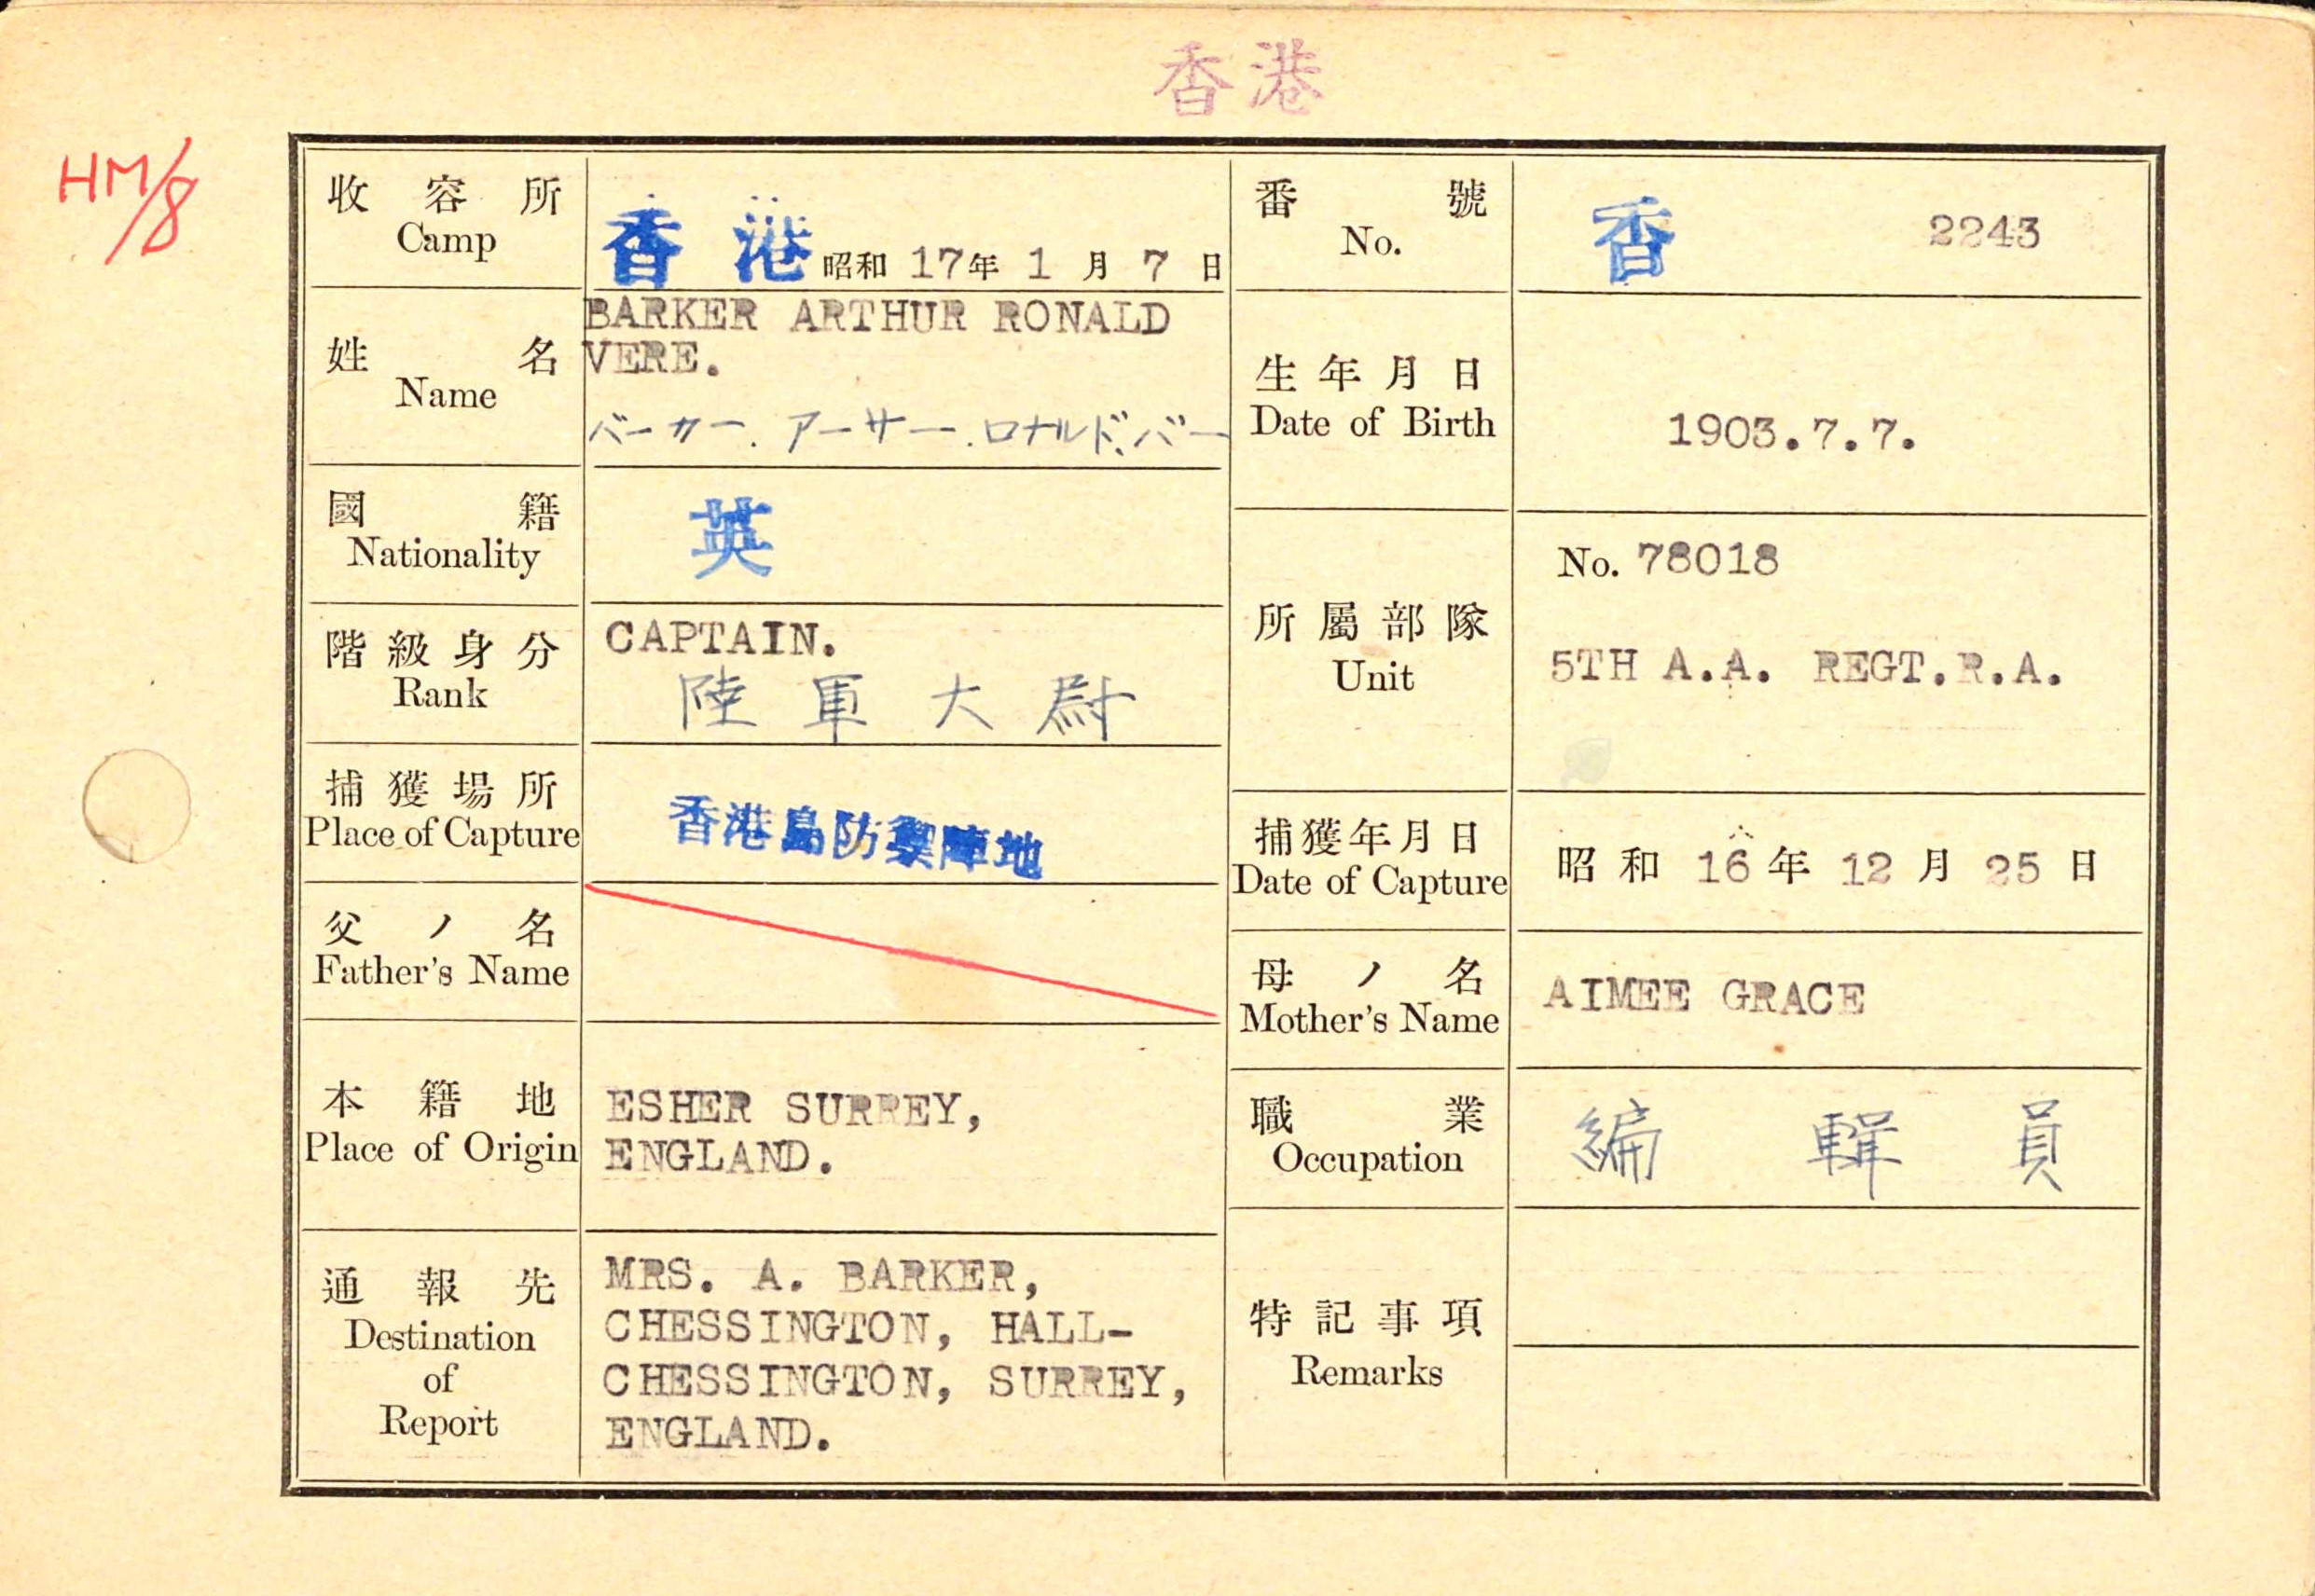 香港
HM/8
收容所
Camp
香港 昭和 17年 1月 7日
番號
No.
香 2243
姓名
Name
BARKER ARTHUR RONALD
VERE.
バーカー.アーサー.ロナルド、バー
生年月日
Date of Birth
1903.7.7.
國籍
Nationality
英
階級身分
Rank
CAPTAIN.
陸軍大尉
所屬部隊
Unit
No. 78018
5TH A.A. REGT.R.A.
捕獲場所
Place of Capture
香港島防禦陣地
捕獲年月日
Date of Capture
昭和 16年 12月 25日
父ノ名
Father's Name
母ノ名
Mother's Name
AIMEE GRACE
本籍地
Place of Origin
ESHER SURREY,
ENGLAND.
職業
Occupation
編輯員
通報先
Destination
of
Report
MRS. A. BARKER,
CHESSINGTON, HALL-
CHESSINGTON, SURREY,
ENGLAND.
特記事項
Remarks